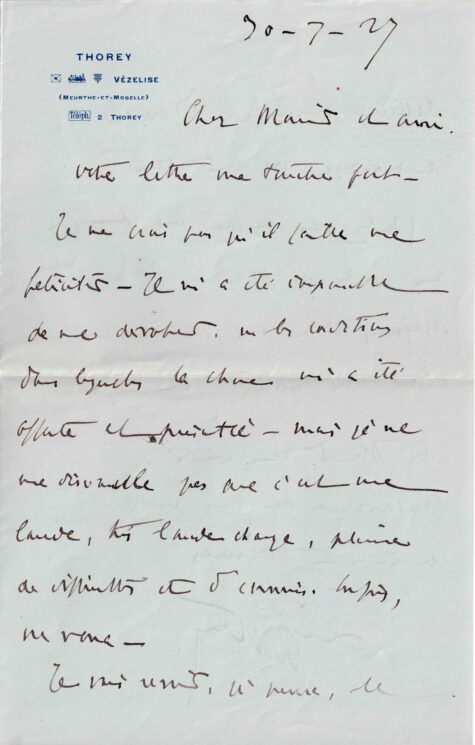 THOREY
VÉZELISE
(MEURTHE-ET-MOSELLE)
Téléph. 2 THOREY
30-7-27
Cher Maître et ami.
votre lettre me touche fort —
Je ne crois pas qu'il faille me
féliciter — Il m'a été impossible
de me dérober, vu les conditions
dans lesquelles la chose m'a été
offerte et présentée — mais je ne
me dissimule pas que c'est une
lourde, très lourde charge, pleine
de difficultés et d'ennuis. Enfin,
Je vais